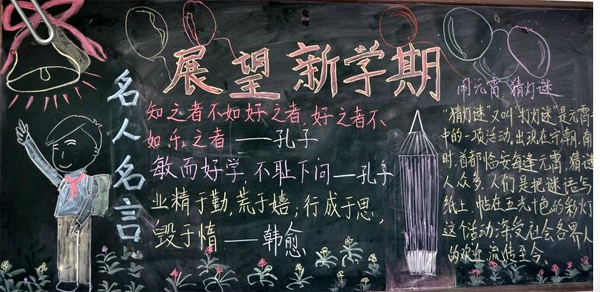 展望新学期
名人名言
知之者不如好之者,好之者不
如乐之者——孔子
敏而好学,不耻下问—孔子
业精于勤,荒于嬉;行成于思,
毁于惰——韩愈
闹元宵 猜灯谜
"猜灯谜"又叫"打灯谜"是元宵
中的一项活动,出现在宋朝.南
时,首都临安每逢元宵,猜谜
人众多.人们是把谜
纸上,帖在五光十色的彩灯
这个活动;深受社会各界人
的欢迎 流传至今.